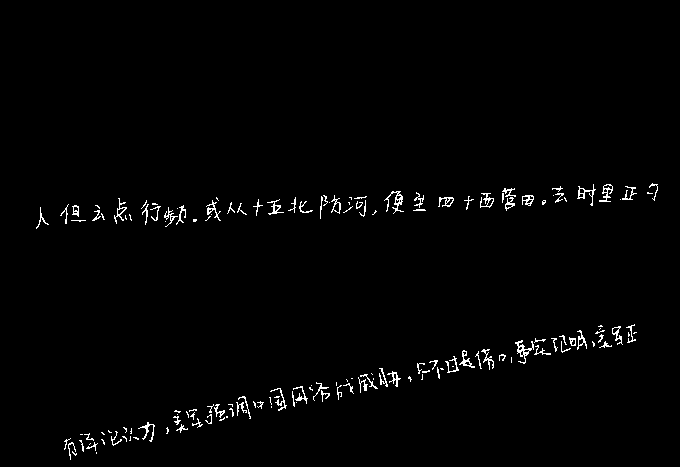 人但云点行频。或从十五北防河,便至四十西营田。去时里正与
有评论认为,美军强调中国网络战威胁,只不过是借口,事实证明,美军正